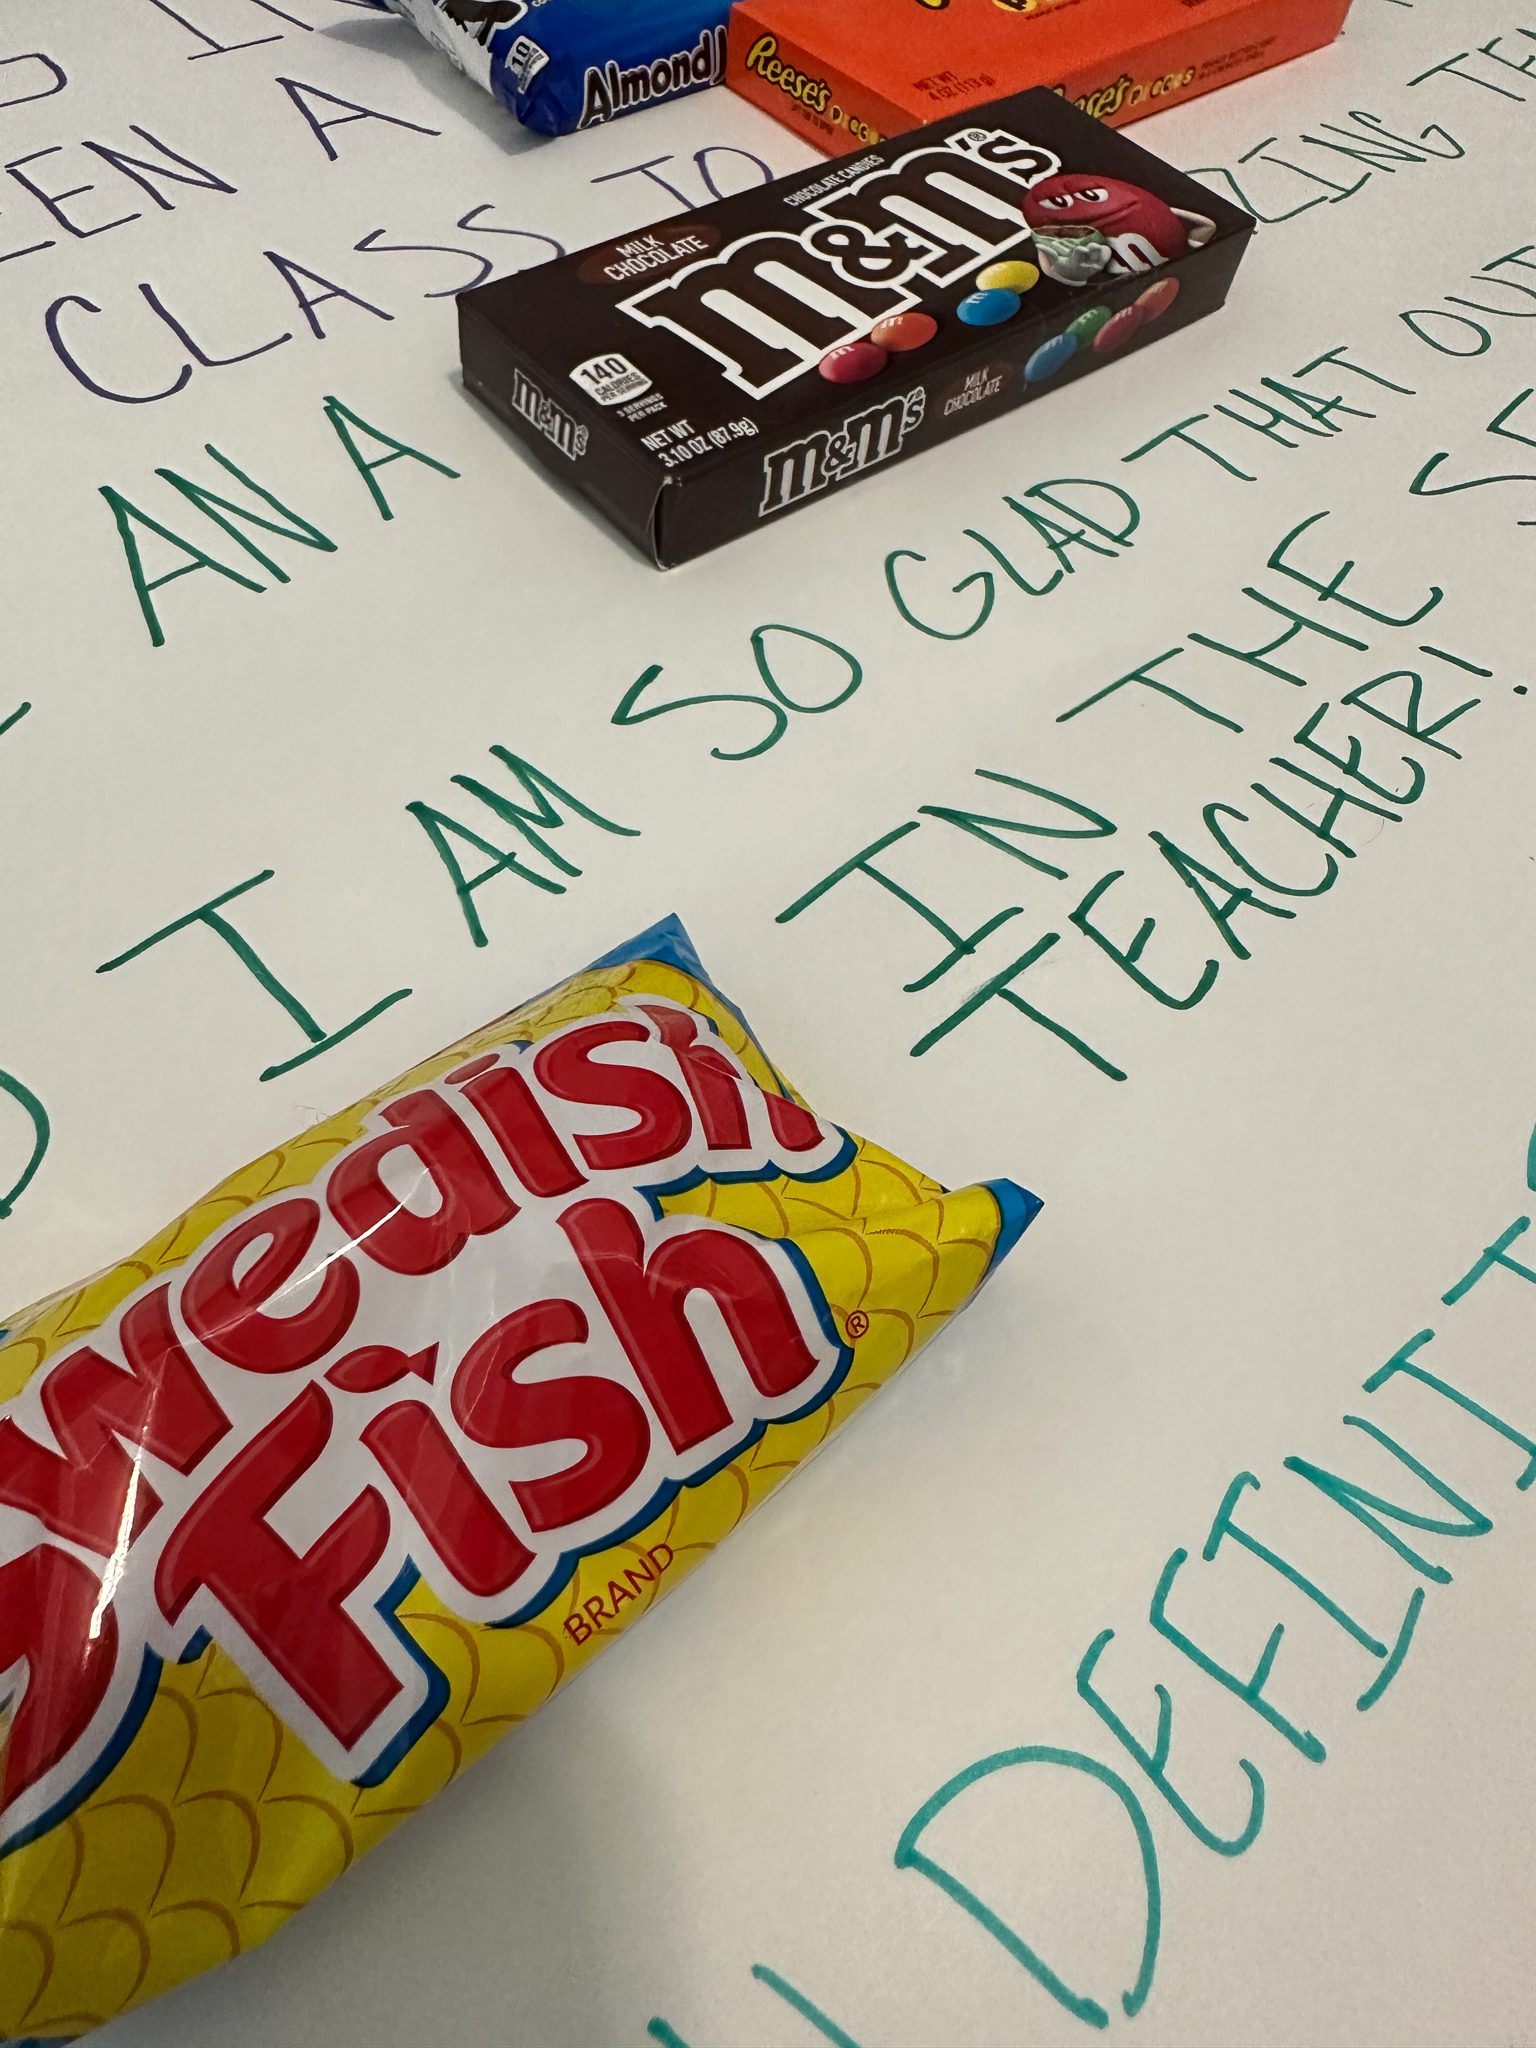 10
Almond J
Reese's
NET WT
4 OZ (113 g)
EEN A
CLASS TO
AN A
MILK
CHOCOLATE
CHOCOLATE CANDIES
m&m's®
140
CALORIES
PER SERVING
3 SERVINGS
PER PACK
NET WT
3.10 OZ (87.9g)
m&m's
m&m's
MILK
CHOCOLATE
ZING TE
I AM SO GLAD THAT OU
IN THE S
TEACHER!
Swedish
Fish®
BRAND
DEFINIT